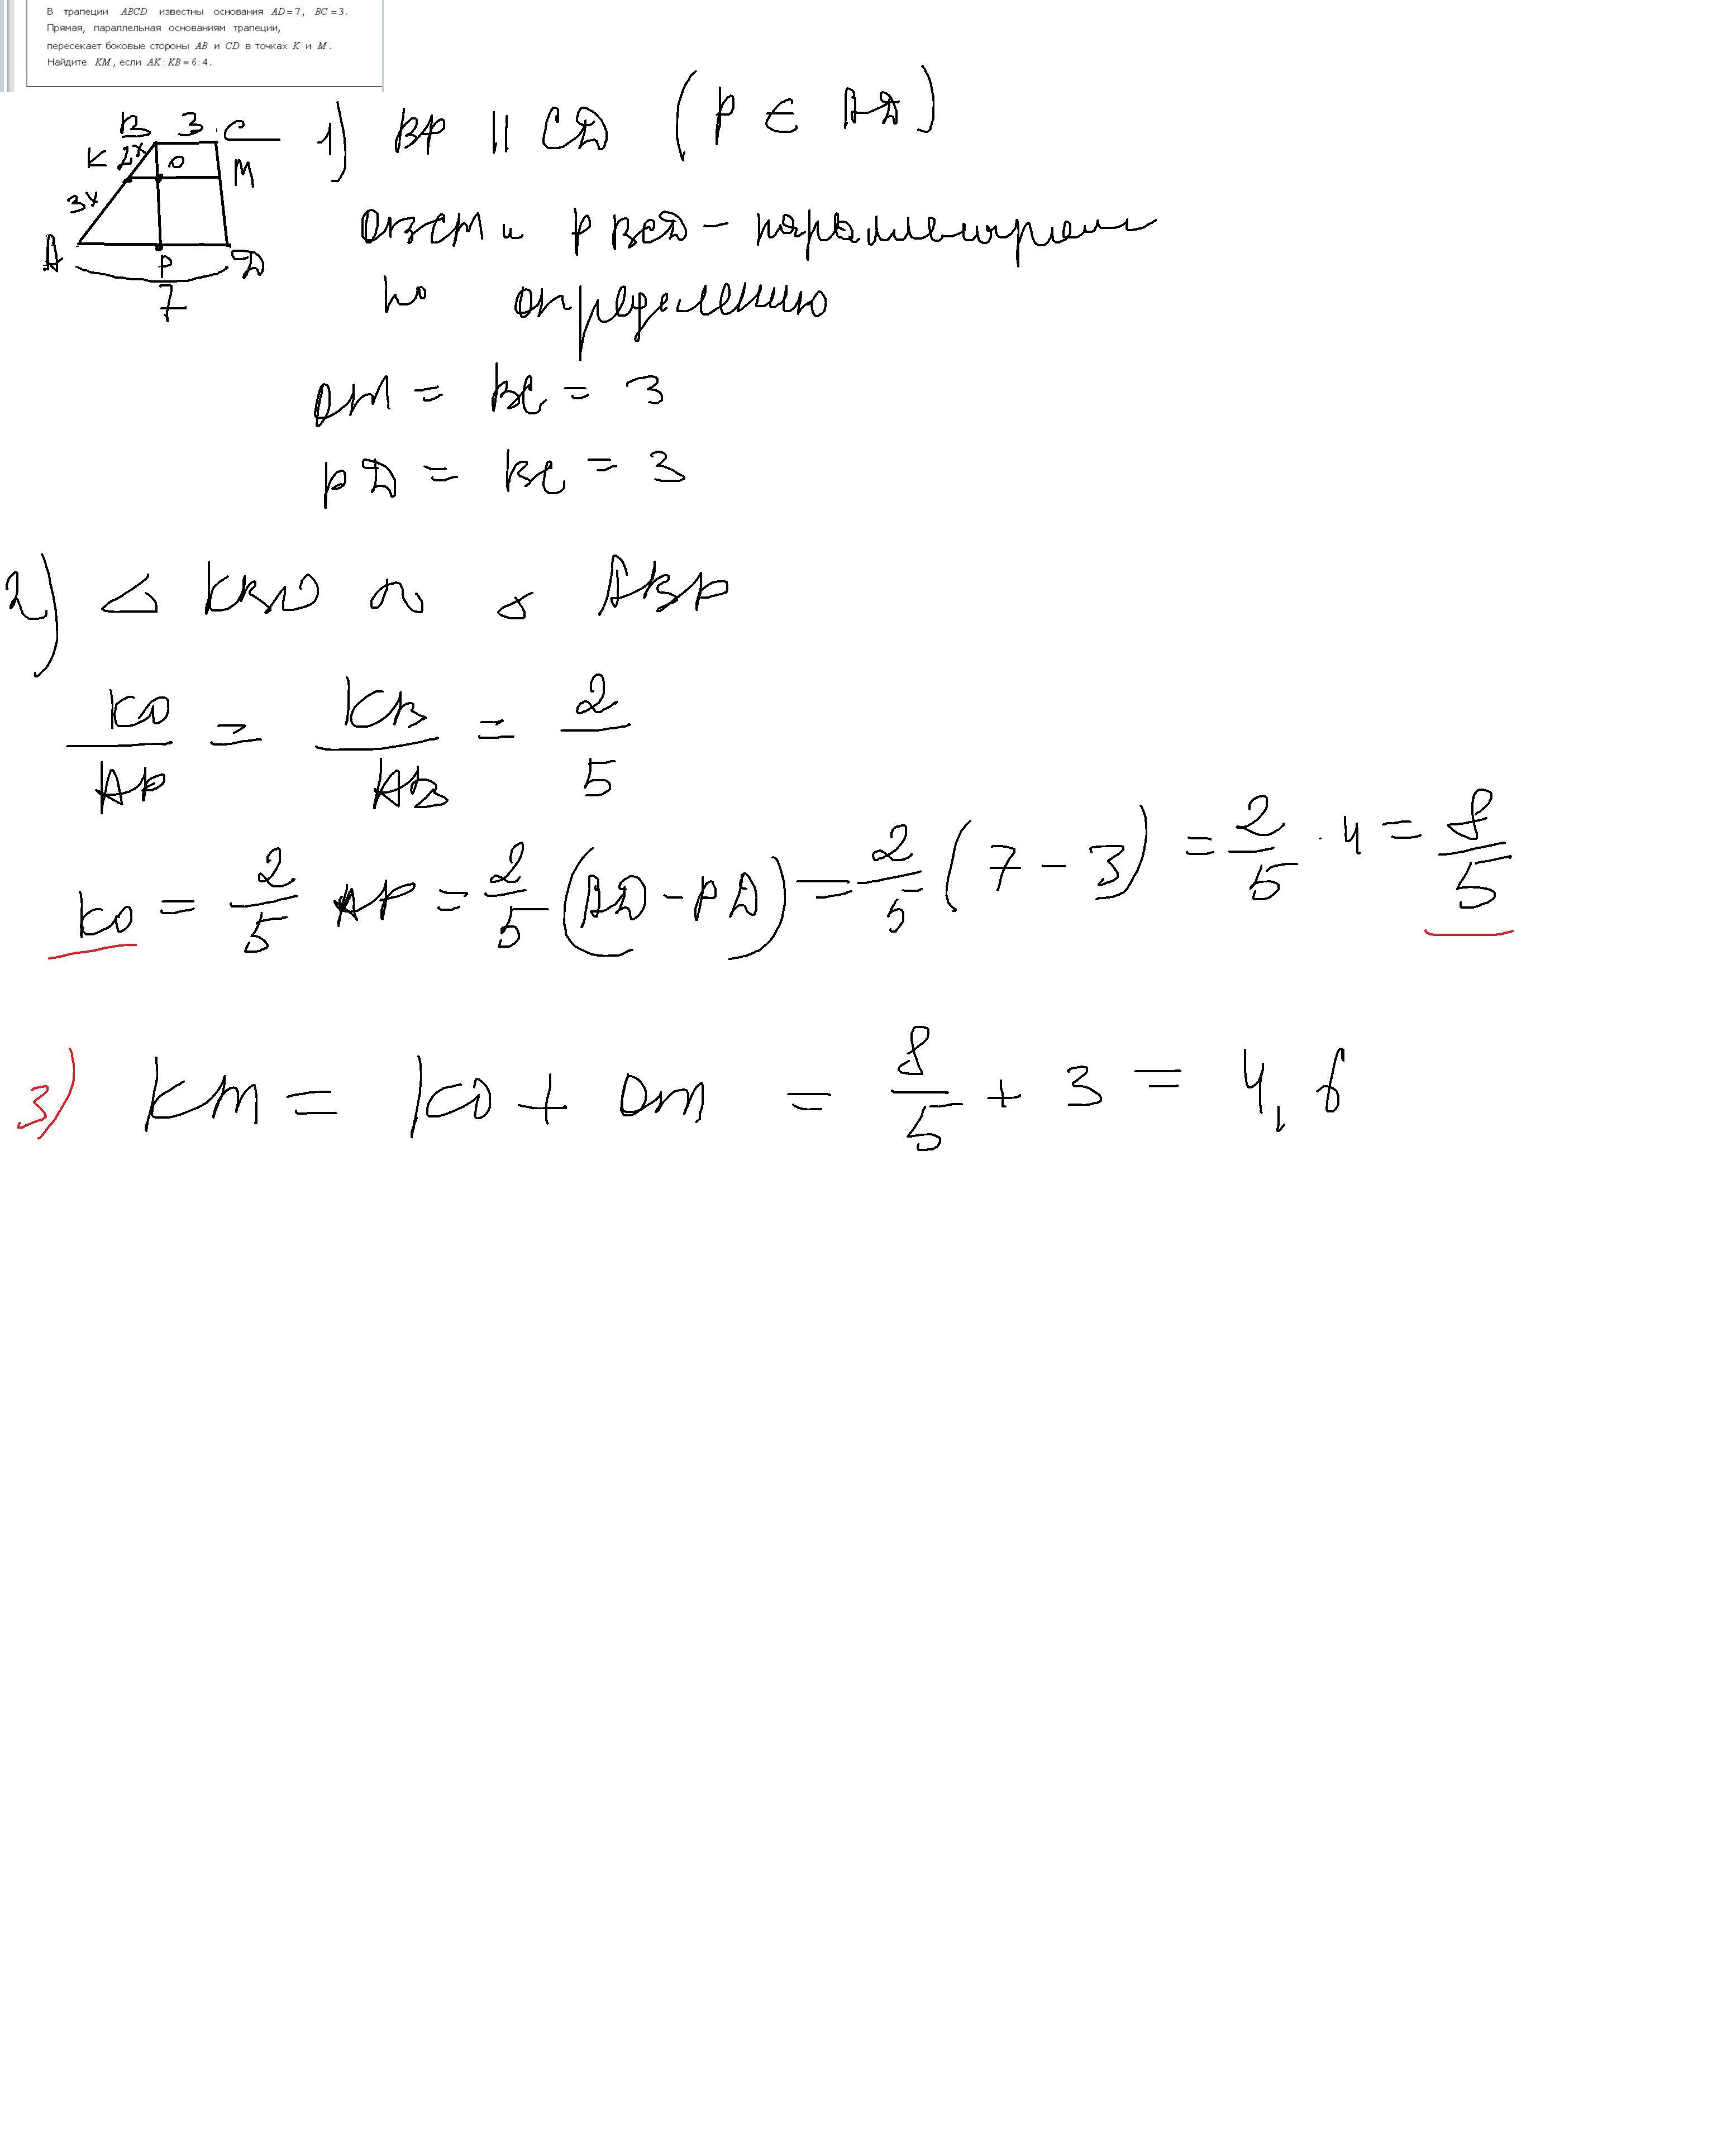 В трапеции ABCD известны основания AD=7, BC=3.
Прямая, параллельная основаниям трапеции,
пересекает боковые стороны AB и CD в точках K и M.
Найдите KM, если AK:KB=6:4.
B 3 C
K 2x O M
3x
A P D
7
1) BP || CD (P ∈ AD)
OBCM и PBCD – параллелограмм
по определению
OM = BC = 3
PD = BC = 3
2) △ KBO ∼ △ ABP
KO/AP = KB/AB = 2/5
KO = 2/5 AP = 2/5 (AD - PD) = 2/5 (7 - 3) = 2/5 · 4 = 8/5
3) KM = KO + OM = 8/5 + 3 = 4,6